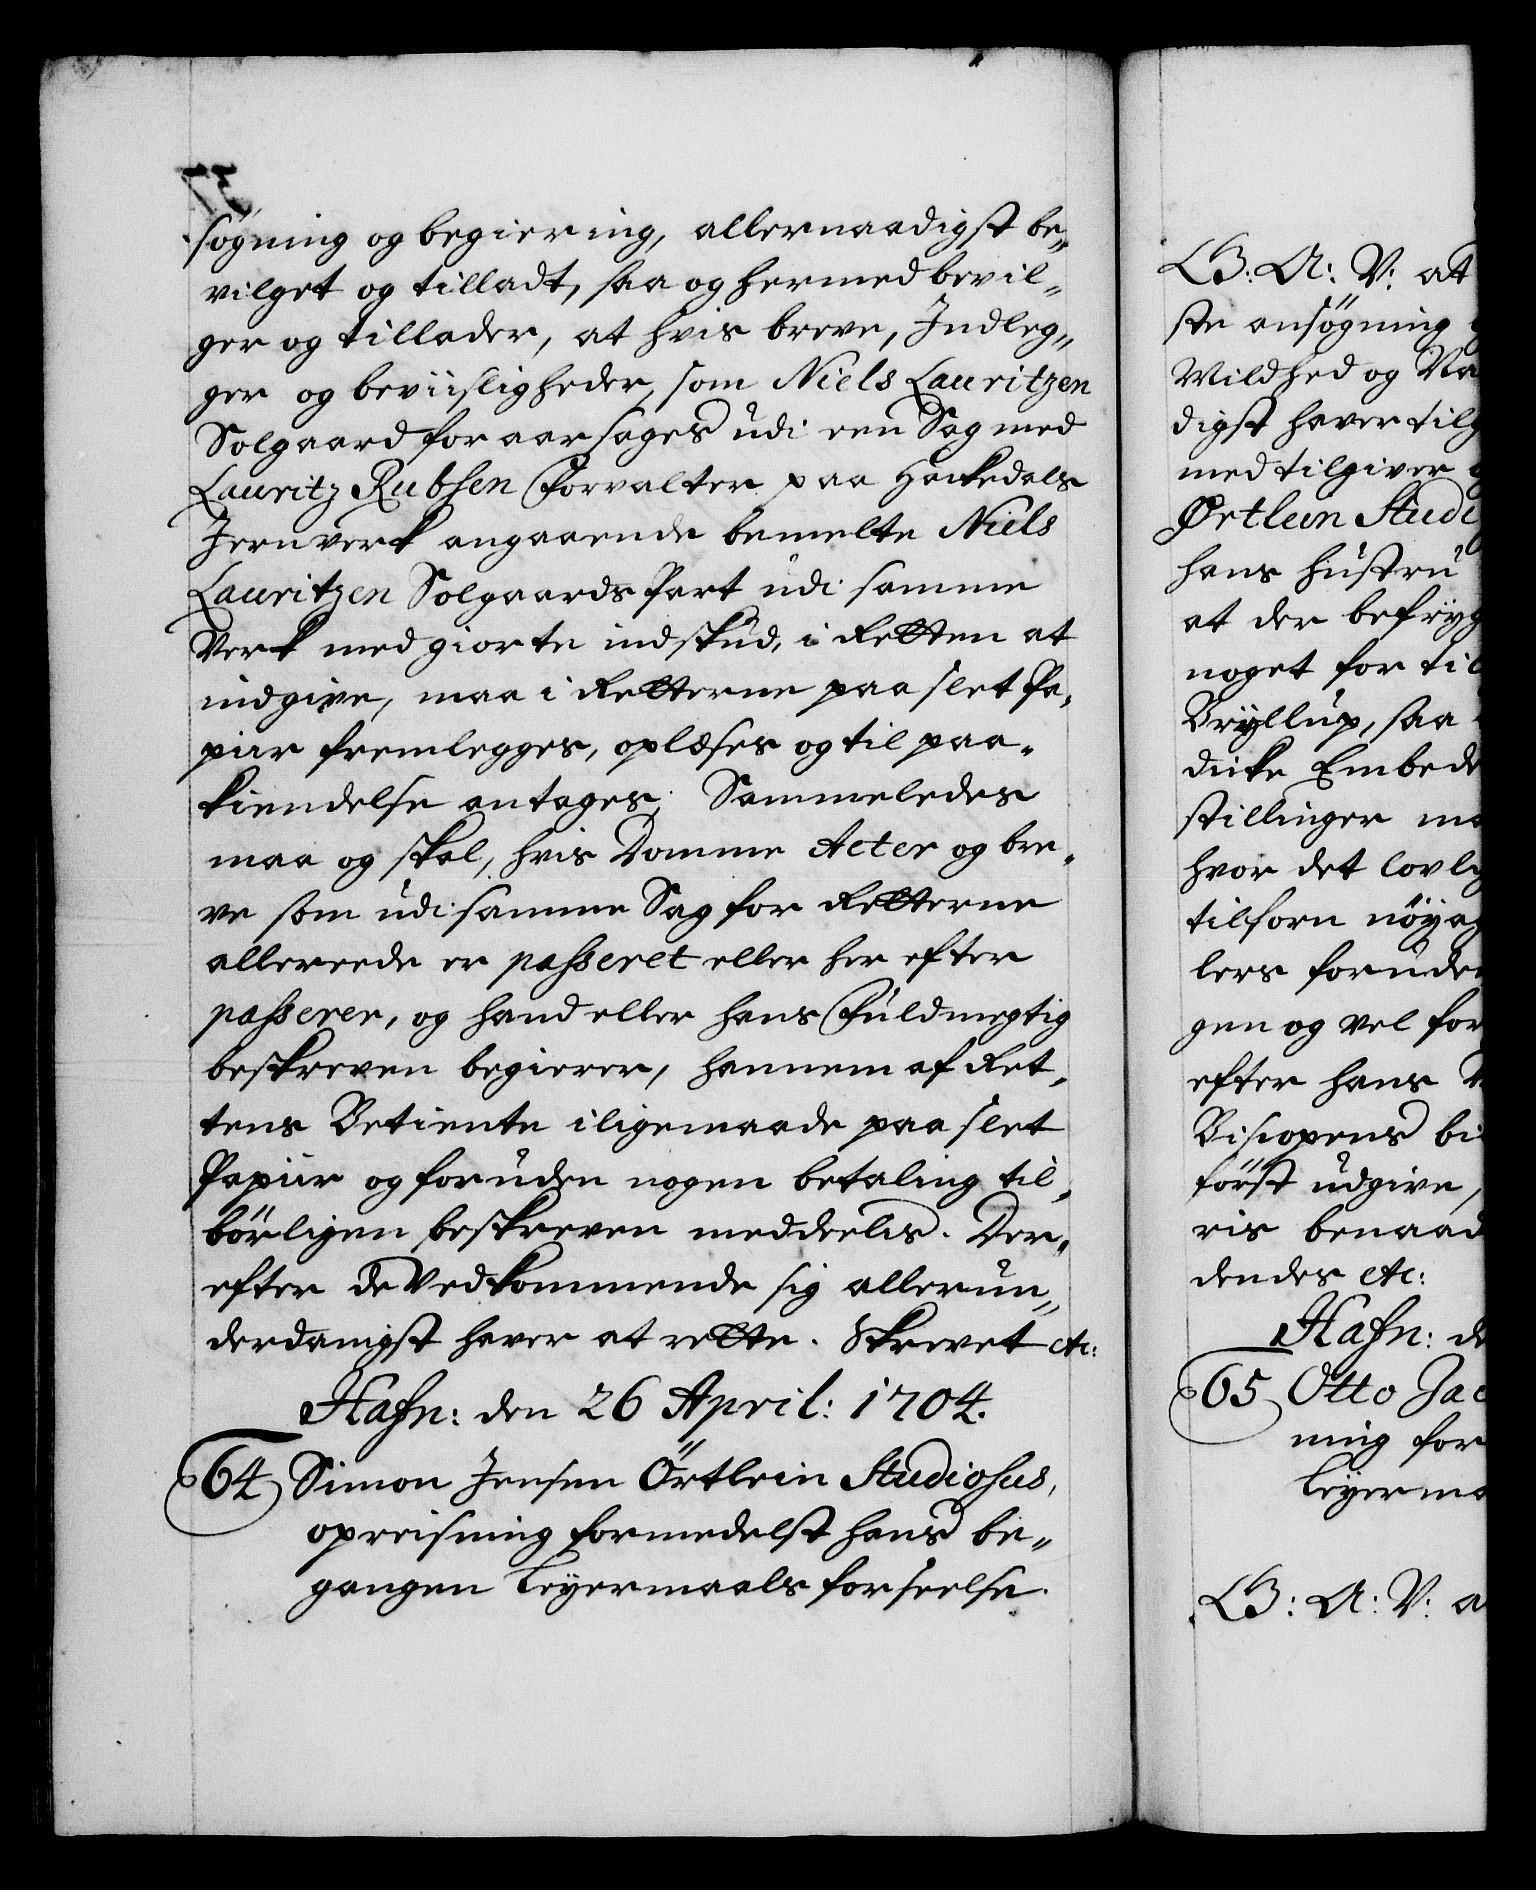 søgning og begiering, allernaadigst be„
vilget og tilladt, saa og hermed bevil„
ger og tillader, at hvis breve, Indleg„
ger og beviisligheder, som Niels Lauritzen
Solgaard foraarsages udi een Sag med
Lauritz Rubsen Forvalter paa Hackedals
Jernverk angaaende bemelte Niels
Lauritzen Solgaards Part udi samme
Verk med giorte indskud, i Retten at
indgive, maa i Retterne paa slet Pa„
piir fremlegges, oplæses og til paa„
kiendelse antages; Sammeledes
maa og skal, hvis Domme Acter og bre„
ve som udi samme Sag for Retterne
allereede er passeret eller her efter
passerer, og hand eller hans Fuldmegtig
beskreven begierer, hannem af Ret„
tens Betiente iligemaade paa slet
Papiir og foruden nogen betaling til„
börligen beskreven meddeelis. Der„
efter de Vedkommende sig allerun„
derdanigst haver at rette. Skrevet etc:
Hafn: den 26 April: 1704.
64 Simon Jensen Örtlein Studiosus,
opreisning formedelst hans be„
gangen Leyermaals forseelse.
37
G: A: V: at
ste ansøgning
Wildhed og Na
digst haver tilg
med tilgiver
Ørtlein Studi
hans hustru
at der befryg
noget for til
Bryllup, saa
dicke Embede
stillinger ma
hvor det lovlig
tilforn nöyag
lers foruden
gen og vel for
efter hans
Biscopens bi
först udgive,
ris benaad
dendes etc:
Hafn: de
65 Otto Jac
ning for
Leyerma
G: A: V: a